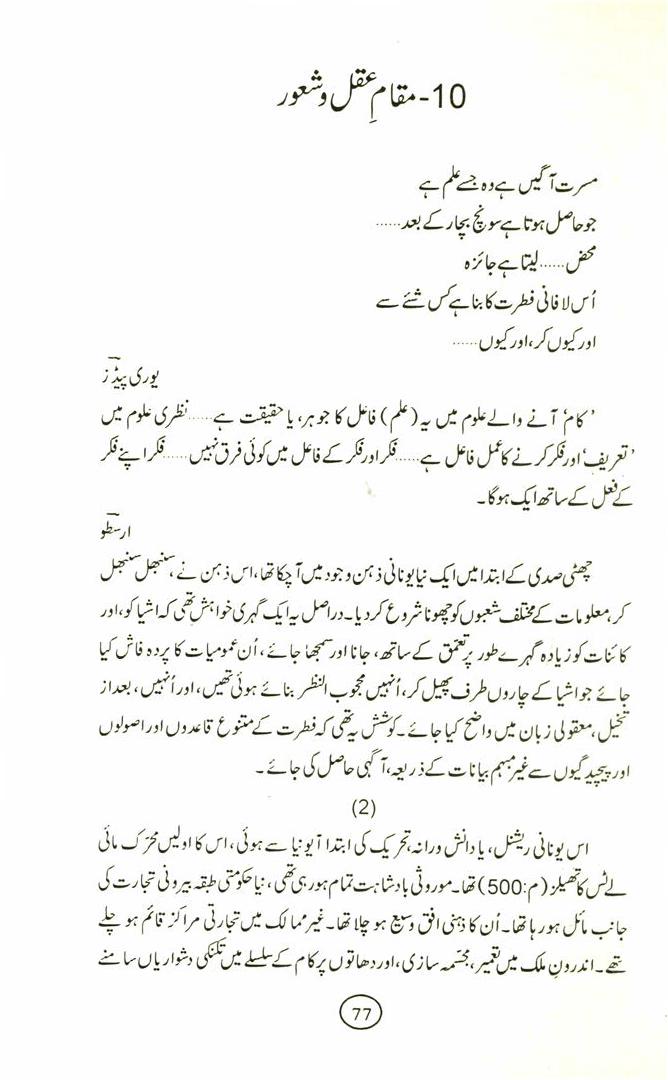 10-مقامِ عقل و شعور
مسرت آگیں ہے وہ جسے علم ہے
جو حاصل ہوتا ہے سونچ بچار کے بعد......
محض......لیتا ہے جائزہ
اُس لافانی فطرت کا بنا ہے کس شئے سے
اور کیوں کر، اور کیوں......
یوری پیڈز
’کام‘ آنے والے علوم میں یہ (علم) فاعل کا جوہر، یا حقیقت ہے......نظری علوم میں
’تعریف‘ اور فکر کرنے کا عمل فاعل ہے......فکر اور فکر کے فاعل میں کوئی فرق نہیں......فکر اپنے فکر
کے فعل کے ساتھ ایک ہوگا۔
ارسطو
چھٹی صدی کے ابتدا میں ایک نیا یونانی ذہن وجود میں آ چکا تھا، اس ذہن نے، سنبھل سنبھل
کر، معلومات کے مختلف شعبوں کو چھونا شروع کر دیا۔ دراصل یہ ایک گہری خواہش تھی کہ اشیا کو، اور
کائنات کو زیادہ گہرے طور پر تعمق کے ساتھ، جانا اور سمجھا جائے، اُن عمومیات کا پردہ فاش کیا
جائے جو اشیا کے چاروں طرف پھیل کر، اُنہیں مجوب النظر بنائے ہوئی تھیں، اور اُنہیں، بعد از
تخیل، معقولی زبان میں واضح کیا جائے۔ کوشش یہ تھی کہ فطرت کے متنوع قاعدوں اور اصولوں
اور پیچیدگیوں سے غیر مبہم بیانات کے ذریعہ، آگہی حاصل کی جائے۔
(2)
اس یونانی ریشنل، یا دانش ورانہ، تحریک کی ابتدا آیونیا سے ہوئی، اس کا اولیں محرّک مائی
لے ٹس کا تھیلز (م:500) تھا۔ موروثی بادشاہت تمام ہو رہی تھی، نیا حکومتی طبقہ بیرونی تجارت کی
جانب مائل ہو رہا تھا۔ اُن کا ذہنی افق وسیع ہو چلا تھا۔ غیر ممالک میں تجارتی مراکز قائم ہو چلے
تھے۔ اندرونِ ملک میں تعمیر، مجسّمہ سازی، اور دھاتوں پر کام کے سلسلے میں تکنکی دشواریاں سامنے
77